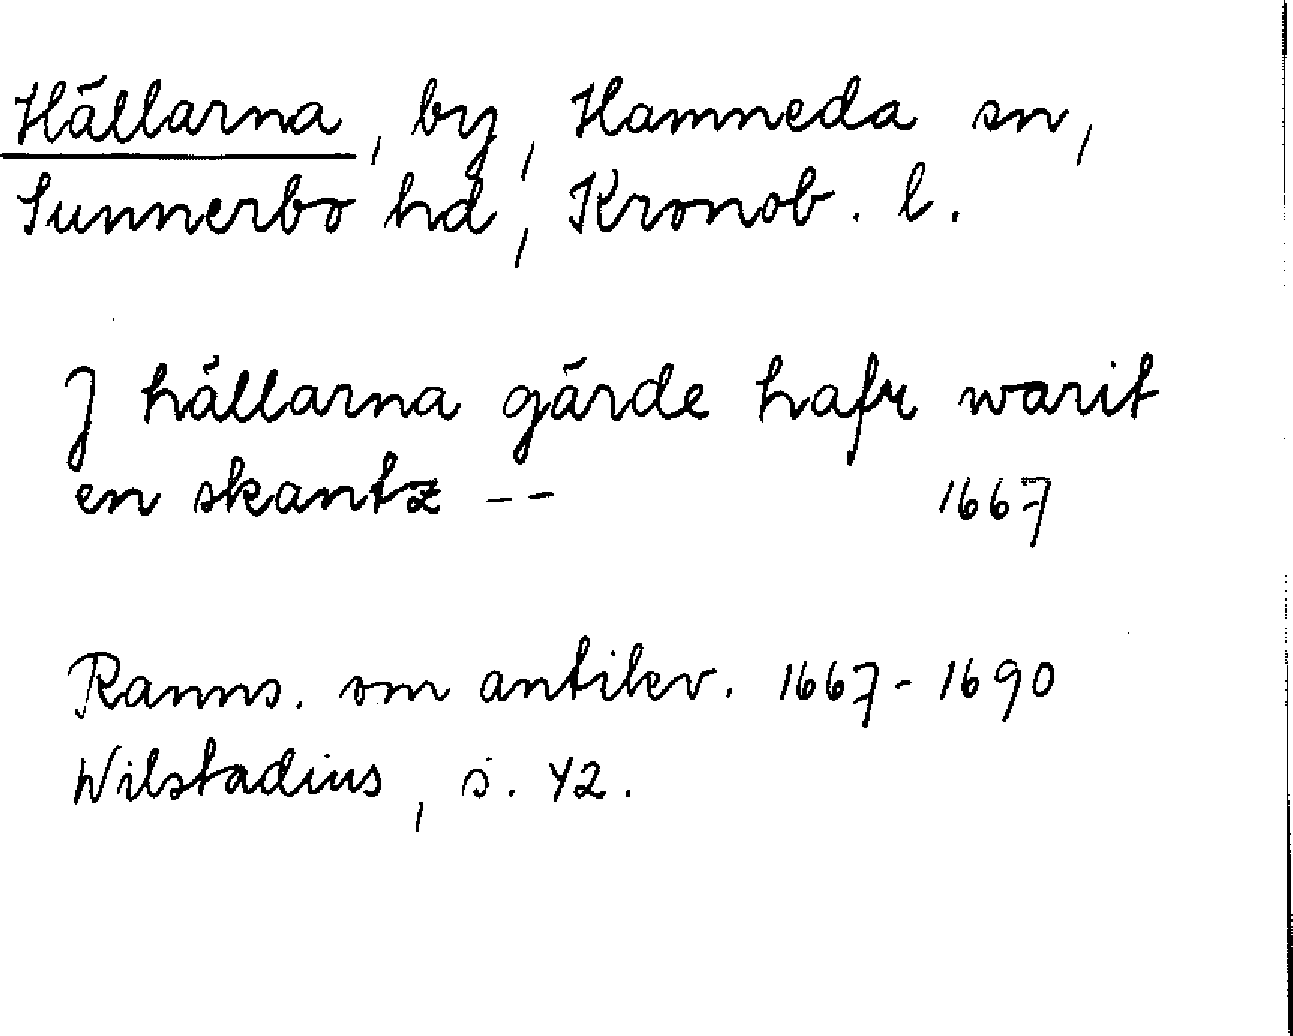 Hällarna, by, Hamneda sn,
Sunnerbo hd, Kronob. l.
J hällarna gärde hafr warit
en skantz -- 1667
Ranns. om antikv. 1667-1690
Wilstadius, s. 42.